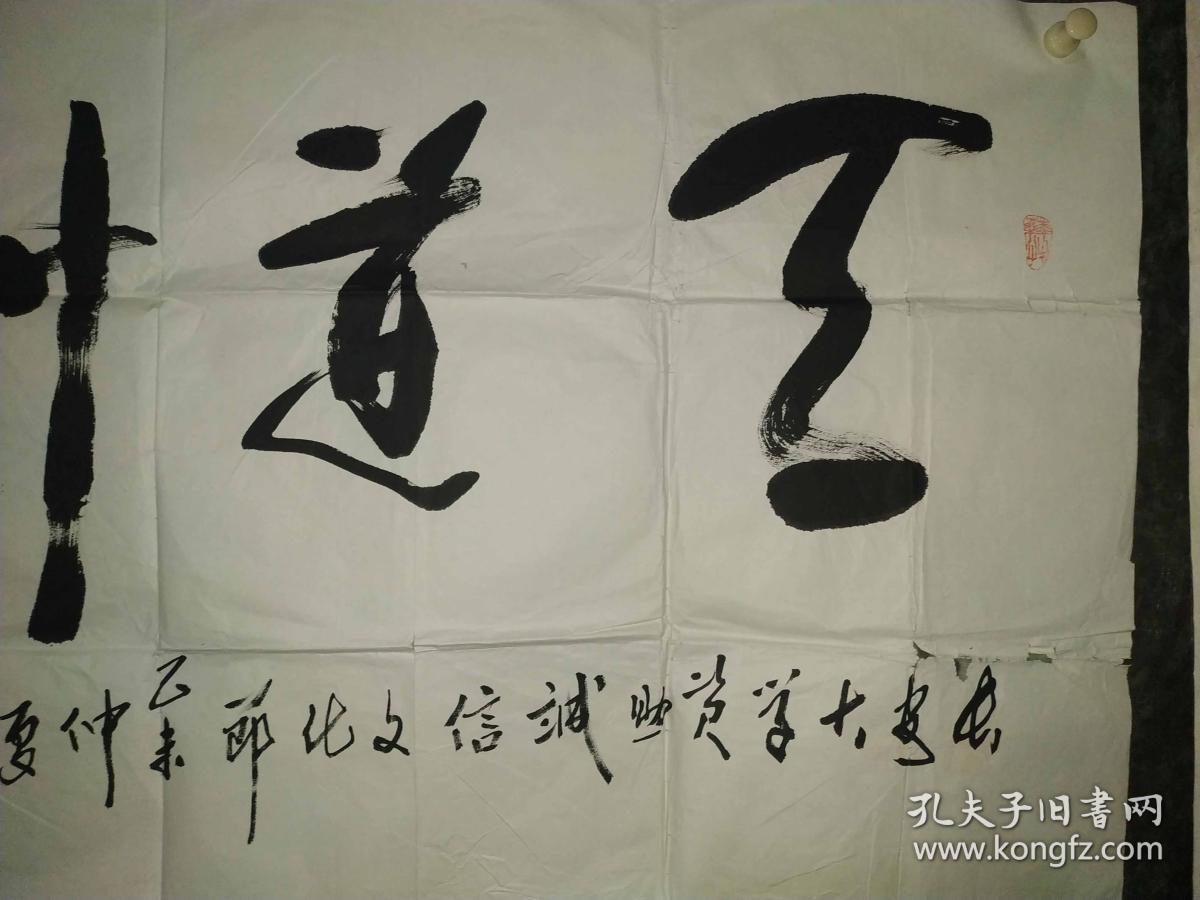 天道
长安大学资助誠信文化节乙未仲夏
孔夫子旧書网
www.kongfz.com